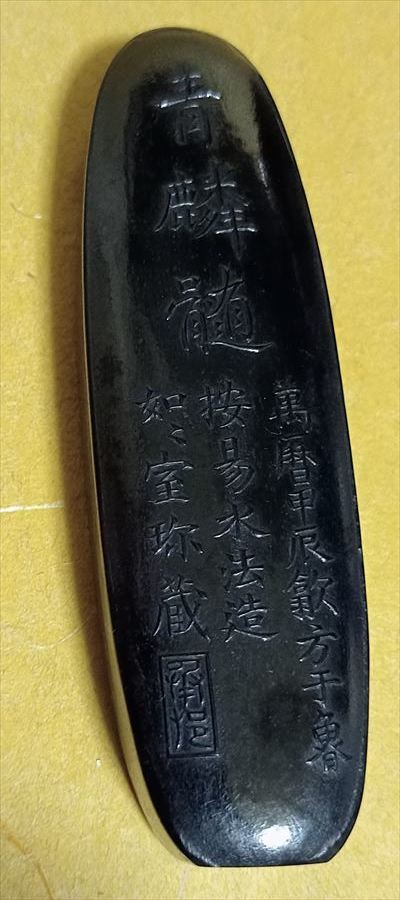 青麟髓
萬曆甲辰歙方于魯
按易水法造
如〻室珎藏